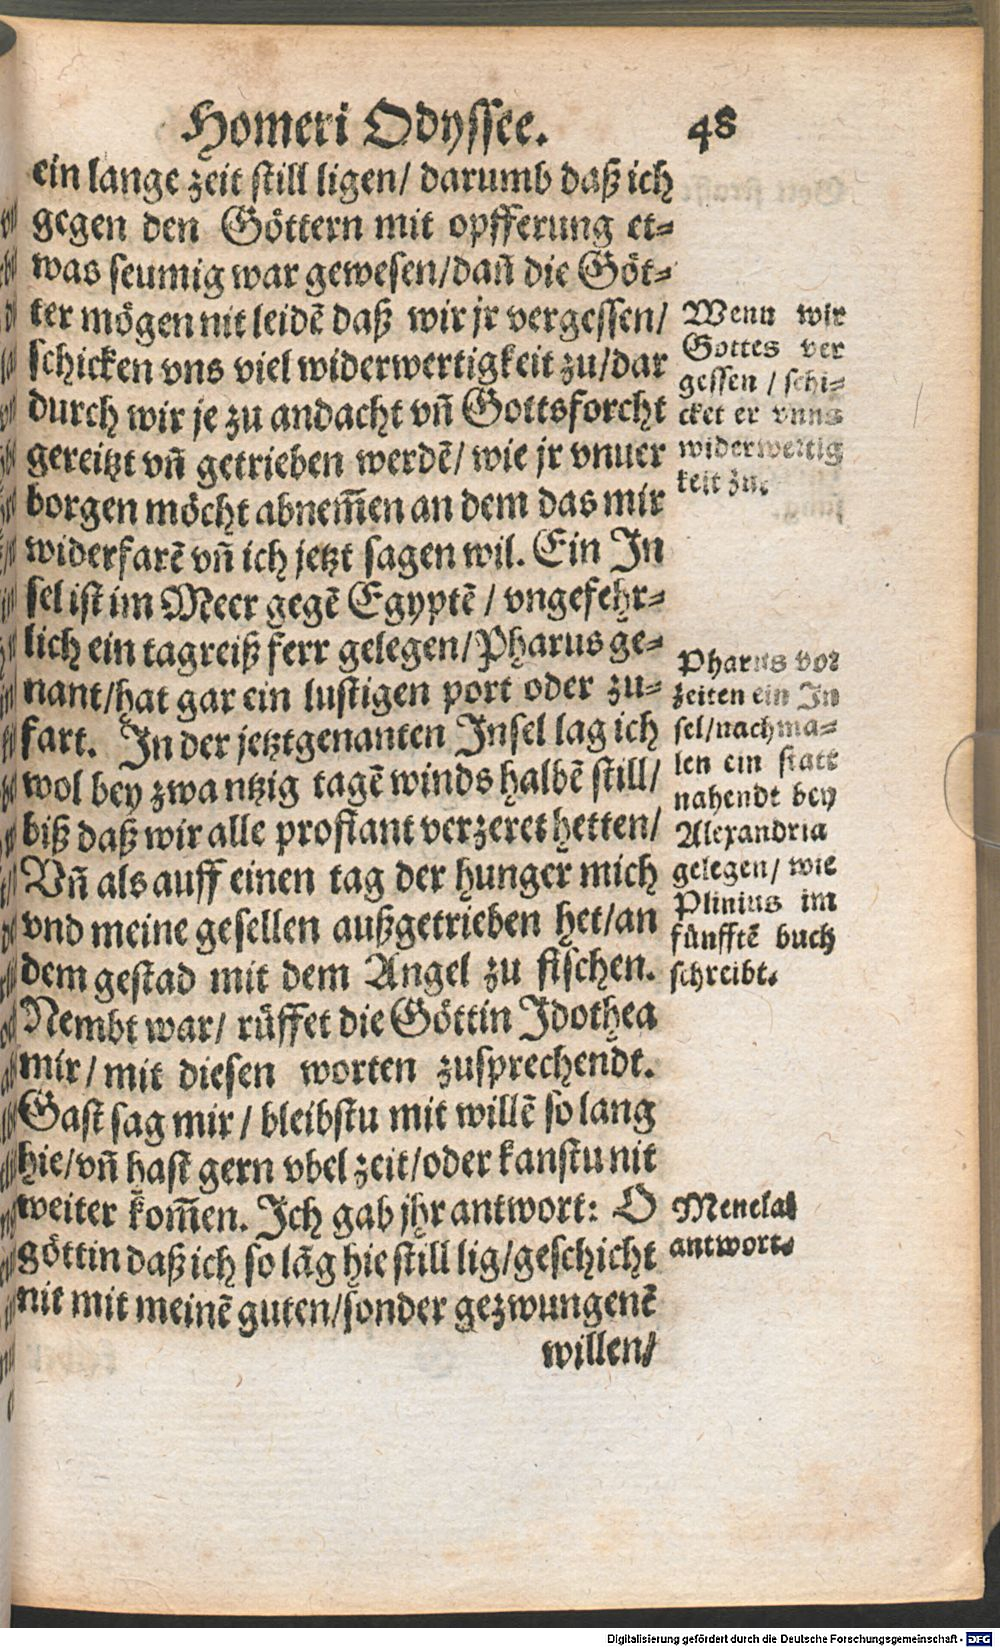 Homeri Odyssee. 48
ein lange zeit still ligen/ darumb daß ich
gegen den Göttern mit opfferung et-
was seumig war gewesen/dañ die Göt-
ter mögen nit leidẽ daß wir jr vergessen/
schicken vns viel widerwertigkeit zu/dar
durch wir je zu andacht vñ Gottsforcht
gereitzt vñ getrieben werdẽ/ wie jr vnuer
borgen möcht abnem̃en an dem das mir
widerfarẽ vñ ich jetzt sagen wil. Ein In
sel ist im Meer gegẽ Egyptẽ / vngefehr-
lich ein tagreiß ferr gelegen/Pharus ge-
nant/hat gar ein lustigen port oder zu-
fart. In der jetztgenanten Insel lag ich
wol bey zwantzig tagẽ winds halbẽ still/
biß daß wir alle profiant verzeret hetten/
Vñ als auff einen tag der hunger mich
vnd meine gesellen außgetrieben het/an
dem gestad mit dem Angel zu fischen.
Nembt war/ rüffet die Göttin Idothea
mir/ mit diesen worten zusprechendt.
Gast sag mir/ bleibstu mit willẽ so lang
hie/vñ hast gern vbel zeit/oder kanstu nit
weiter kom̃en. Ich gab jhr antwort: O
göttin daß ich so lãg hie still lig/geschicht
nit mit meinẽ guten/sonder gezwungenẽ
willen/
Wenn wir
Gottes ver
gessen / schi-
cket er vnns
widerwertig
keit zu.
Pharus vor
zeiten ein In
sel/nachma-
len ein statt
nahendt bey
Alexandria
gelegen/ wie
Plinius im
fünfftẽ buch
schreibt.
Menelai
antwort.
Digitalisierung gefördert durch die Deutsche Forschungsgemeinschaft - DFG